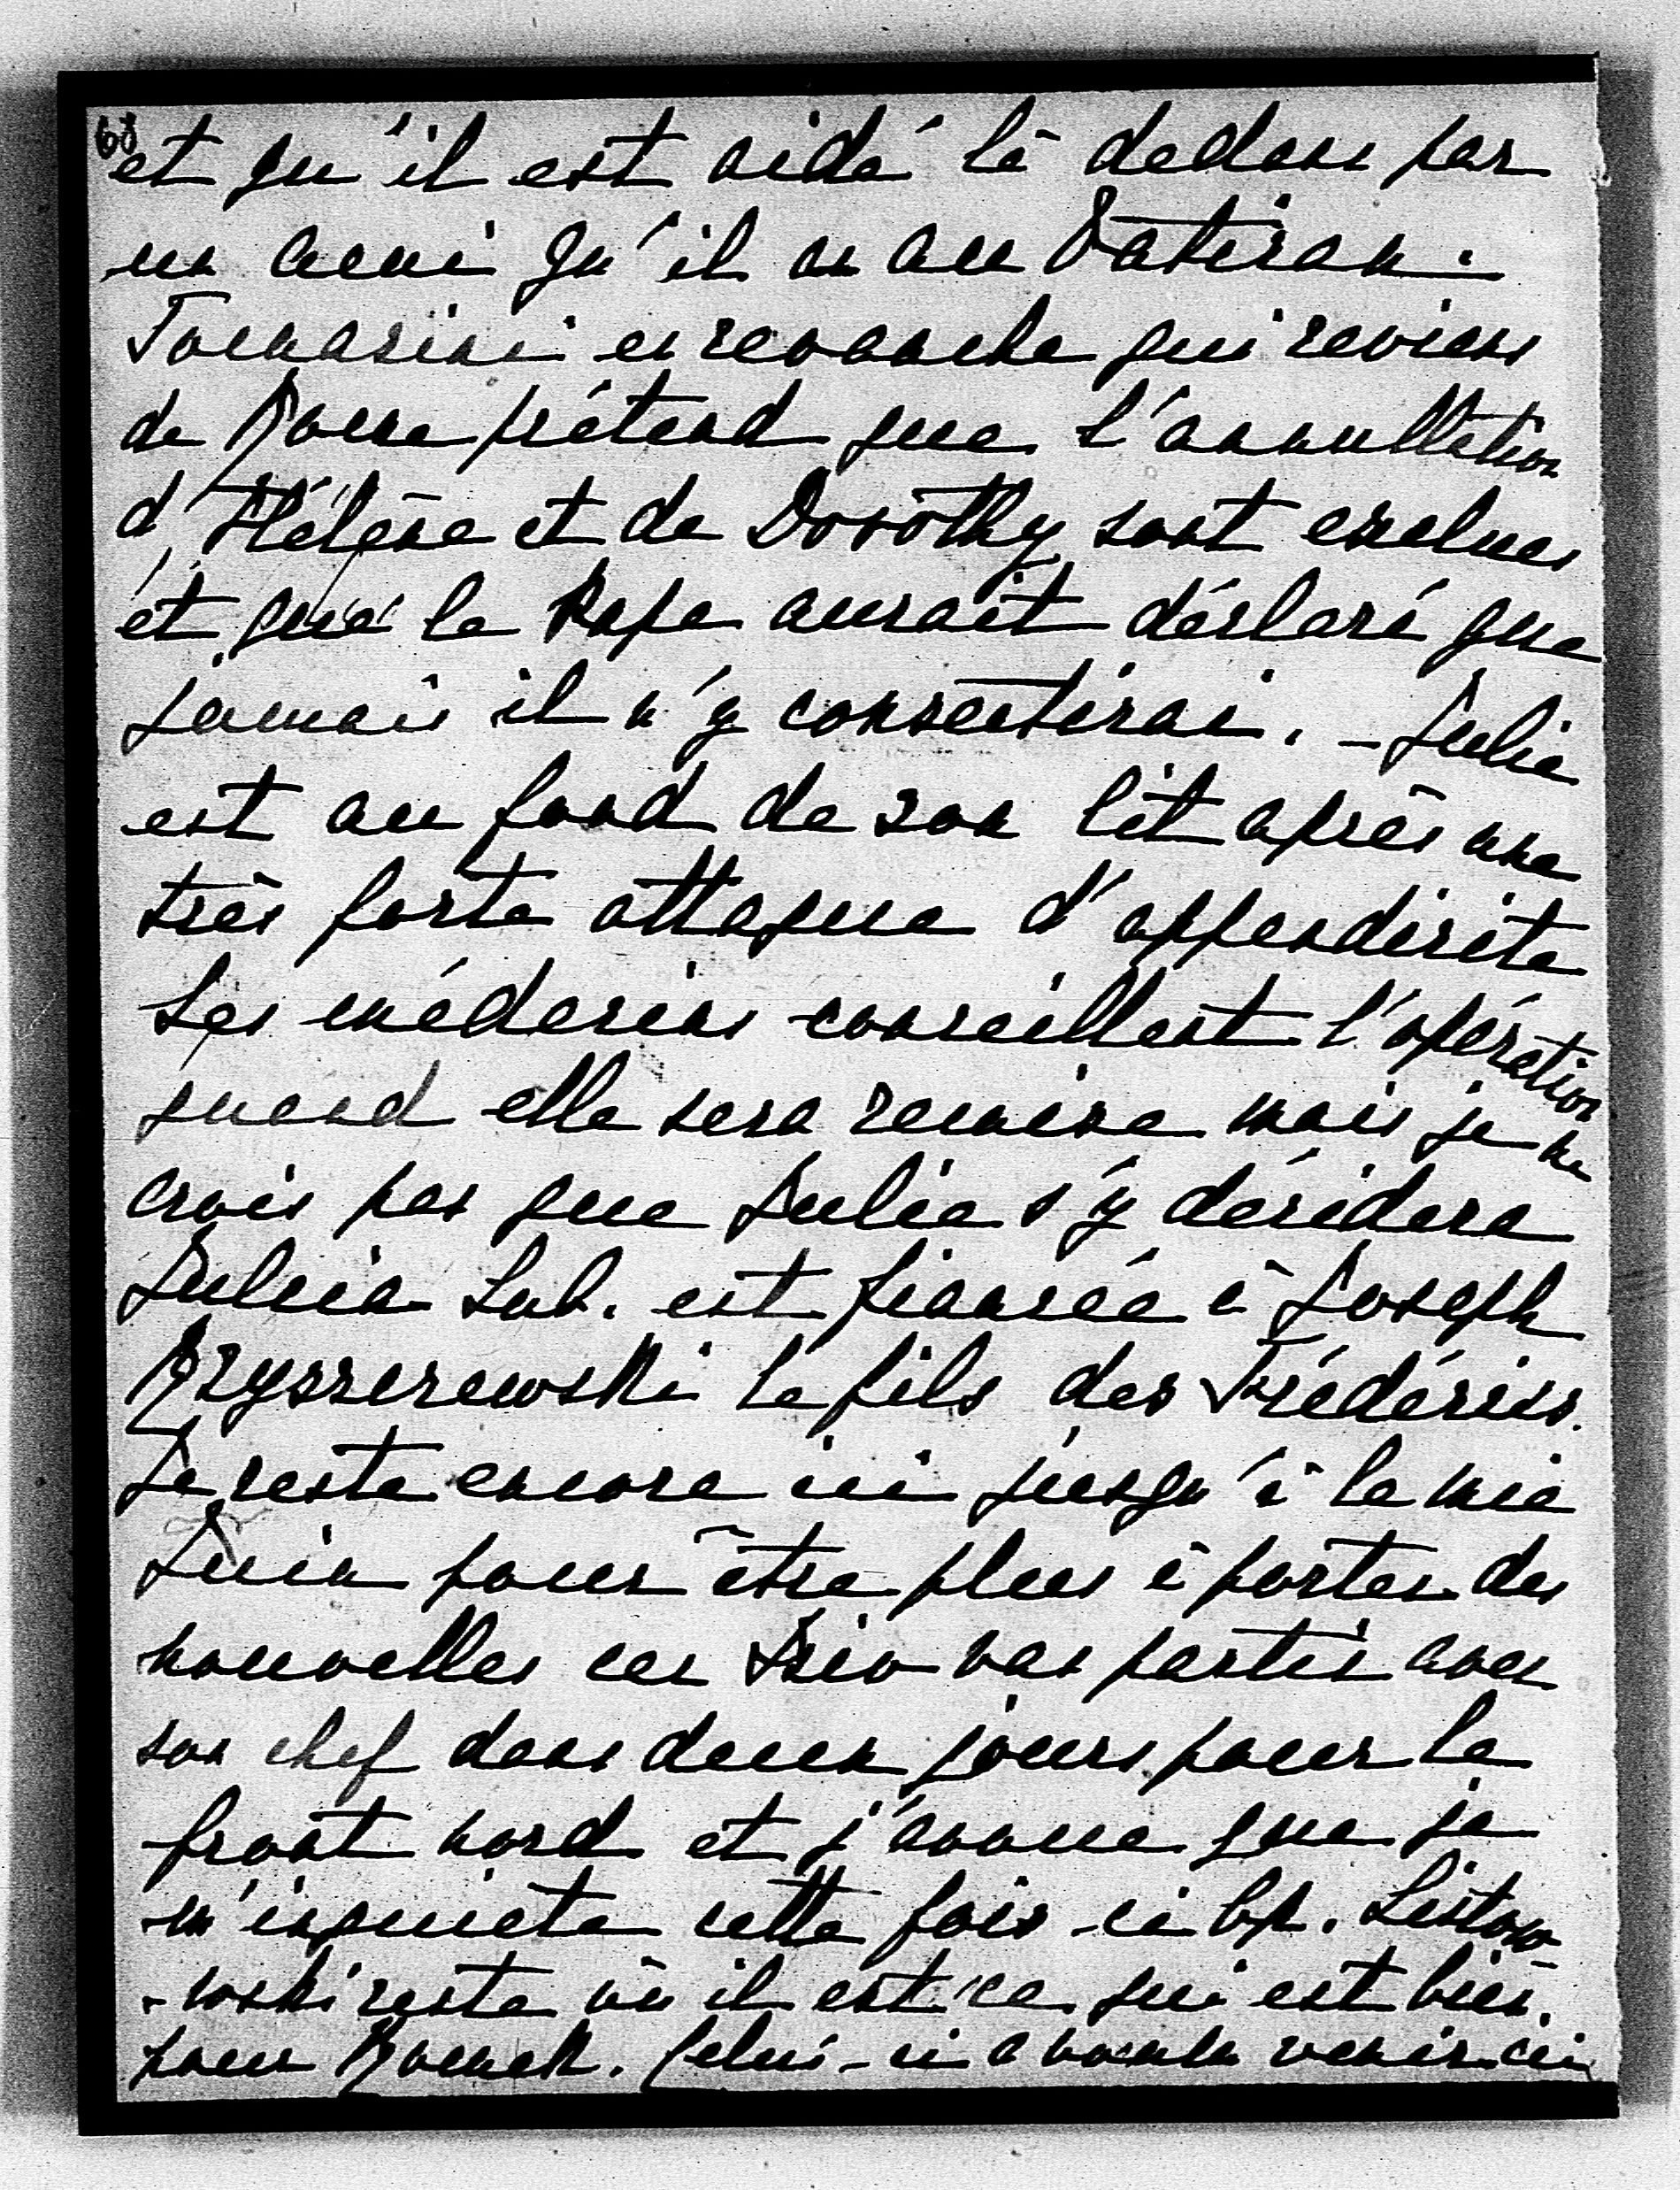 68
et qu'il est aidé là dedans par
un ami qu'il a au Vatican.
Tomasini en revanche qui reviens
de Rome prétend que l'annullation
d'Hélène et de Dorothy sont exclues
et que le Pape aurait déclaré que
jamais il n'y consentirai. – Julie
est au fond de son lit après une
très forte attaque d'appendicite
Les médecins conseillent l'opération
quand elle sera remise mais je ne
crois pas que Julie s'y décidera
Julcia Lub. est fiancée à Joseph
le fils des Frédérics.
Je reste encore ici jusqu'à la mie
Juin pour être plus à portée des
nouvelles car vas partir avec
son chef dans deux jours pour le
front nord et j'avoue que je
m'inquiète cette fois-ci bp. Listow
-wski reste où il est ce qui est bien
pour Romek. Celui-ci a voulu venir ici